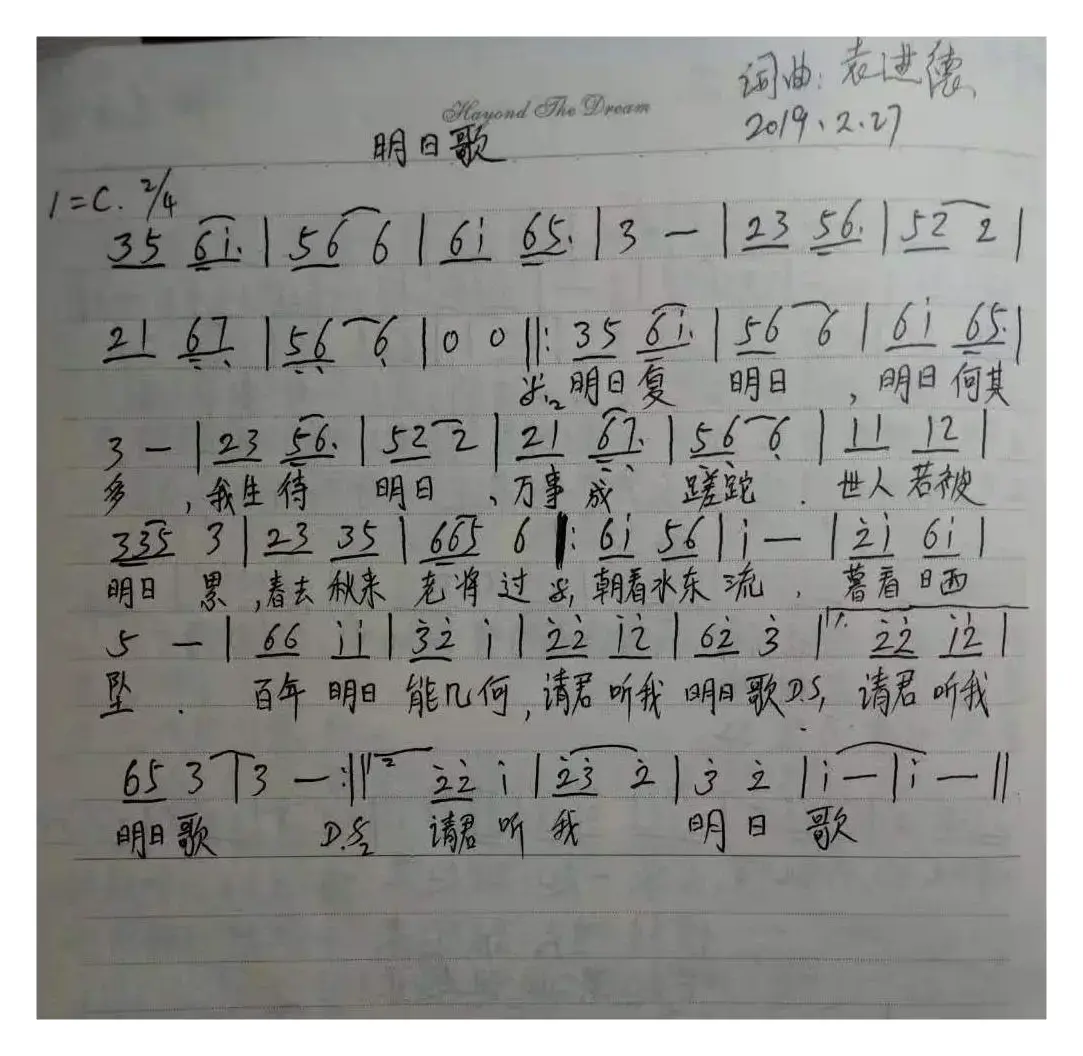 词曲：袁进德
Hayond The Dream
2019、2.27
明日歌
1=C. 2/4
35 6i. | 56 6 | 6i 65. | 3 — | 23 56. | 52 2 |
21 67 | 56 6 | 0 0 ‖: 35 6i. | 56 6 | 6i 65. |
明日复 明日 ，明日何其
3 — | 23 56. | 52 2 | 21 67. | 56 6 | 11 12 |
多 ，我生待 明日 、万事成 蹉跎 . 世人若被
335 3 | 23 35 | 665 6 : 6i 56 | i — | 2i 6i |
明日 累 ,春去秋来 老将过 朝看水东流 . 暮看日西
5 — | 66 ii | 32 i | 22 i2 | 62 3 | 1. 22 i2 |
坠 . 百年明日能几何,请君听我明日歌D.S, 请君听我
65 3 | 3 — :‖ 2 22 i | 23 2 | 3 2 | i — | i — ‖
明日歌 D.S2 请君听我 明日歌